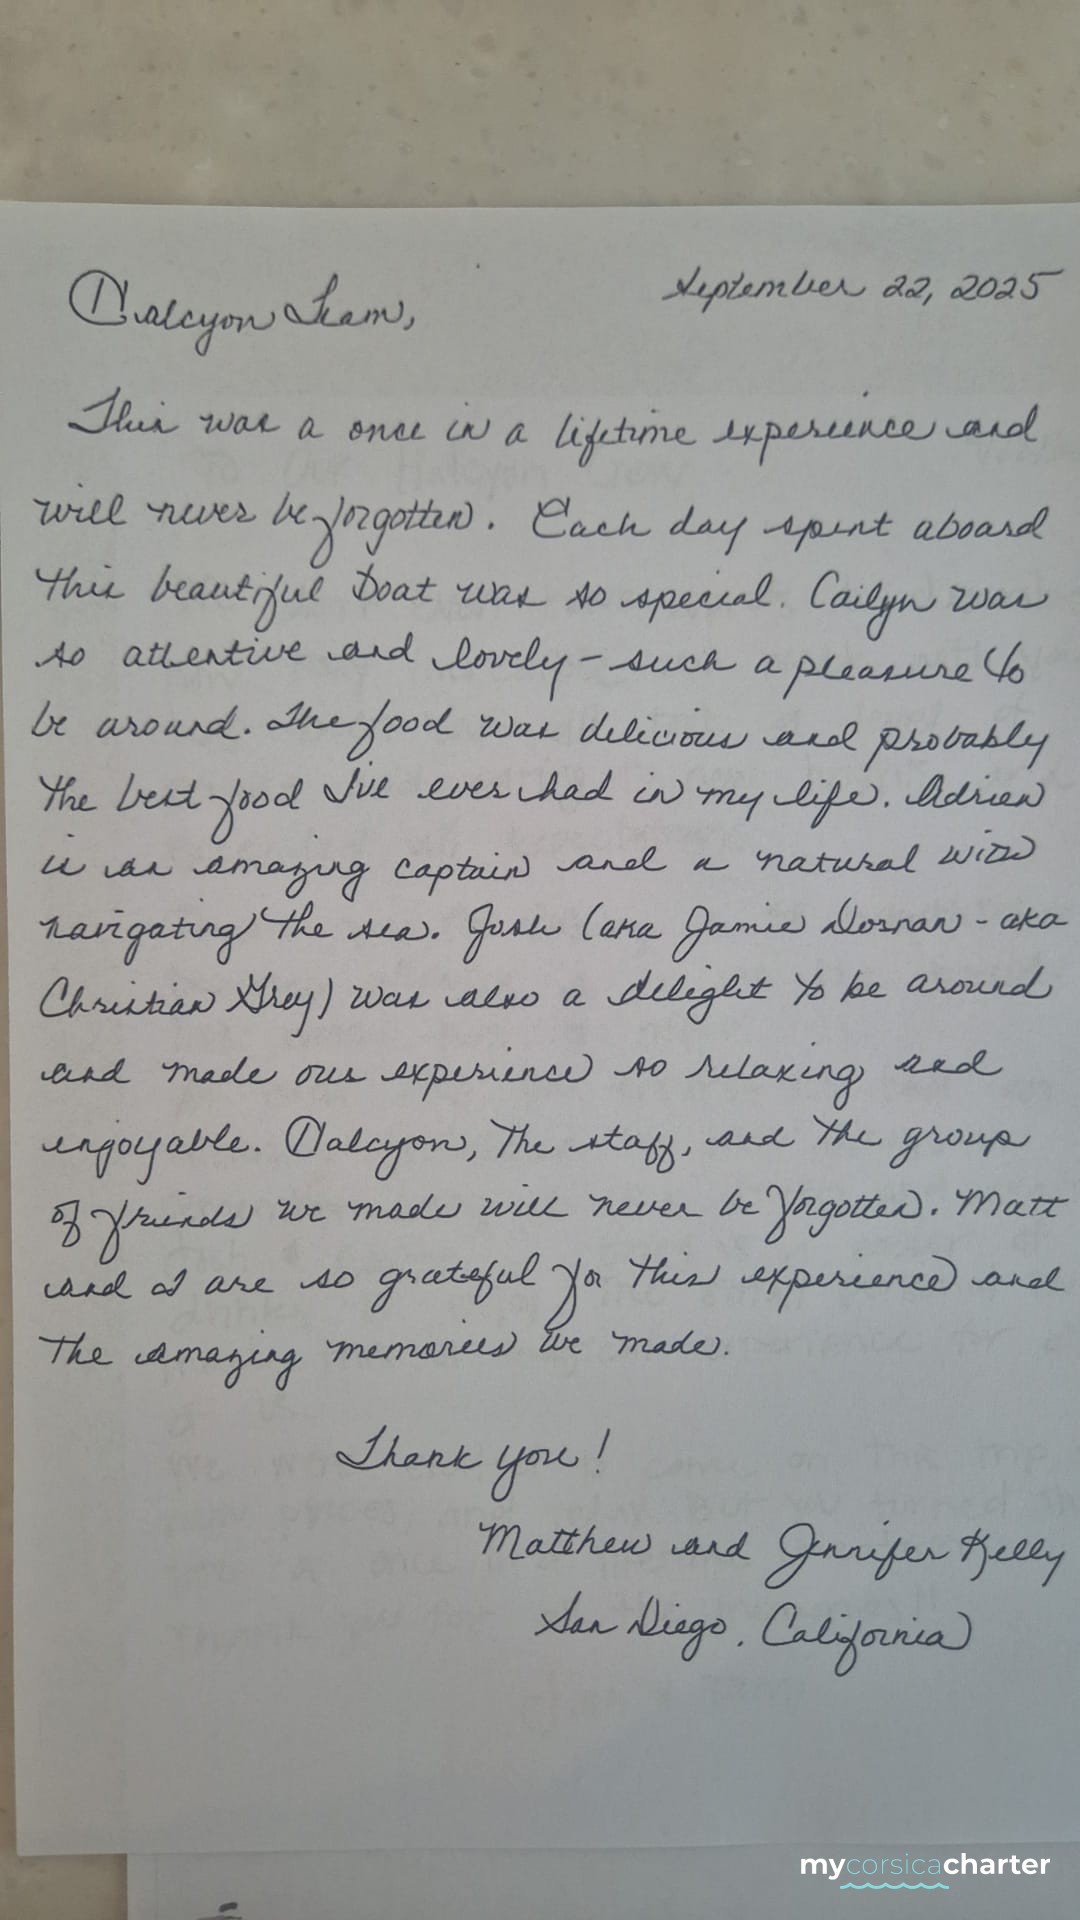 Halcyon Team,
September 22, 2025
This was a once in a lifetime experience and
will never be forgotten. Each day spent aboard
this beautiful boat was so special. Cailyn was
so attentive and lovely - such a pleasure to
be around. The food was delicious and probably
the best food I've ever had in my life. Adrien
is an amazing captain and a natural with
navigating the sea. Josh (aka Jamie Dornan - aka
Christian Grey) was also a delight to be around
and made our experience so relaxing and
enjoyable. Halcyon, the staff, and the group
of friends we made will never be forgotten. Matt
and I are so grateful for this experience and
the amazing memories we made.
Thank you!
Matthew and Jennifer Kelly
San Diego, California
mycorsicacharter